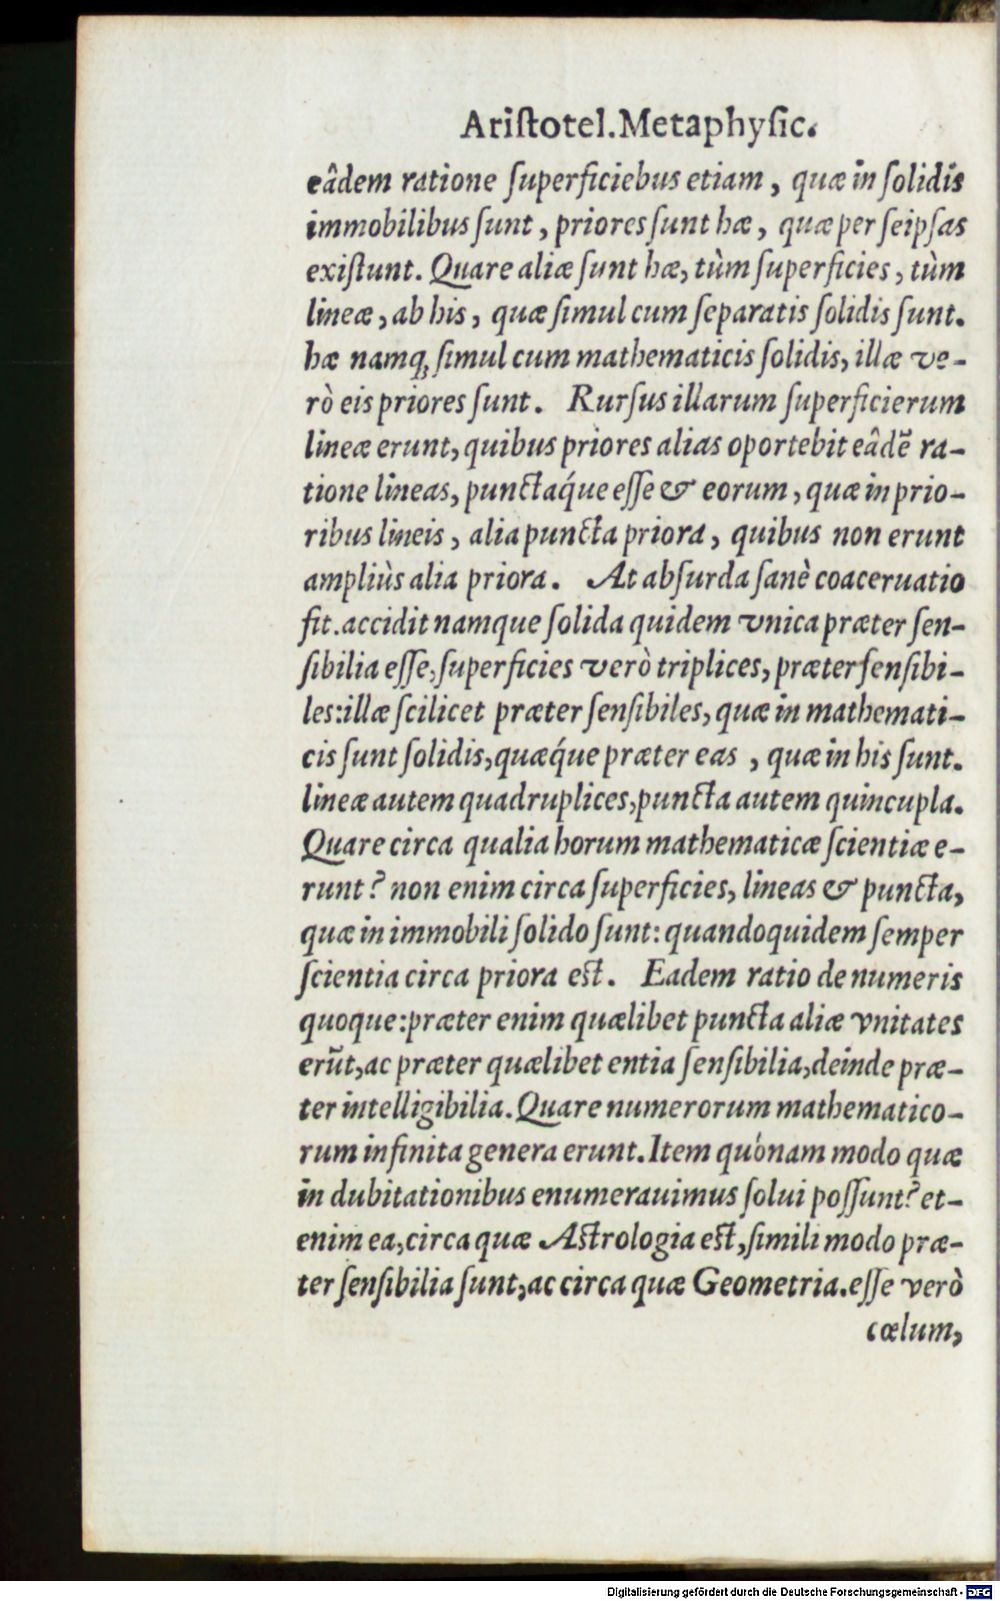 Ariſtotel.Metaphyſic.
eâdem ratione ſuperficiebus etiam, quæ in ſolidis
immobilibus ſunt, priores ſunt hæ, quæ per ſeipſas
exiſtunt. Quare aliæ ſunt hæ, tùm ſuperficies, tùm
lineæ, ab his, quæ ſimul cum ſeparatis ſolidis ſunt.
hæ namq; ſimul cum mathematicis ſolidis, illæ ve-
rò eis priores ſunt. Rurſus illarum ſuperficierum
lineæ erunt, quibus priores alias oportebit eâdẽ ra-
tione lineas, punctaq́ue eſſe & eorum, quæ in prio-
ribus lineis, alia puncta priora, quibus non erunt
ampliùs alia priora. At abſurda ſanè coaceruatio
fit. accidit namque ſolida quidem vnica præter ſen-
ſibilia eſſe, ſuperficies verò triplices, præter ſenſibi-
les: illæ ſcilicet præter ſenſibiles, quæ in mathemati-
cis ſunt ſolidis, quæq́ue præter eas, quæ in his ſunt.
lineæ autem quadruplices, puncta autem quincupla.
Quare circa qualia horum mathematicæ ſcientiæ e-
runt? non enim circa ſuperficies, lineas & puncta,
quæ in immobili ſolido ſunt: quandoquidem ſemper
ſcientia circa priora eſt. Eadem ratio de numeris
quoque: præter enim quælibet puncta aliæ vnitates
erũt, ac præter quælibet entia ſenſibilia, deinde præ-
ter intelligibilia. Quare numerorum mathematico-
rum infinita genera erunt. Item quónam modo quæ
in dubitationibus enumerauimus ſolui poſſunt? et-
enim ea, circa quæ Aſtrologia eſt, ſimili modo præ-
ter ſenſibilia ſunt, ac circa quæ Geometria. eſſe verò
cœlum,
Digitalisierung gefördert durch die Deutsche Forschungsgemeinschaft - DFG